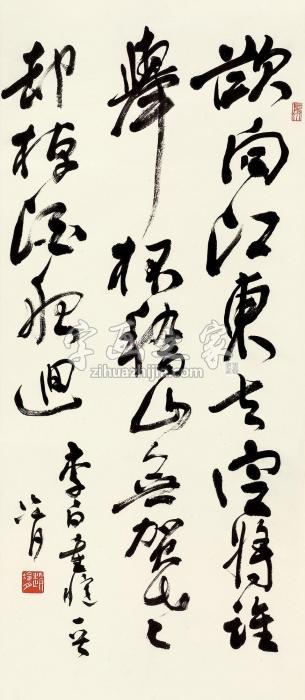 欲向江東去定將誰
舉杯稽山無賀老
却棹酒船迴
李白重憶一首
冷月
字画之家
zihuazhijia.com